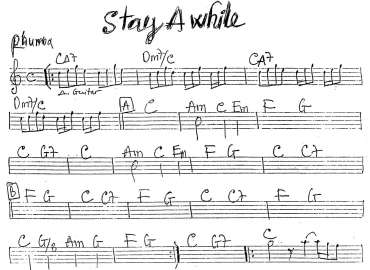 Stay Awhile
Rhumba
CΔ7 Dm7/C CΔ7
Guitar
Dm7/C A C Am C Em F G
C G7 C Am C Em F G C C7
B F G C C7 F G C C7 F G
C G/B Am G F G C G7 C